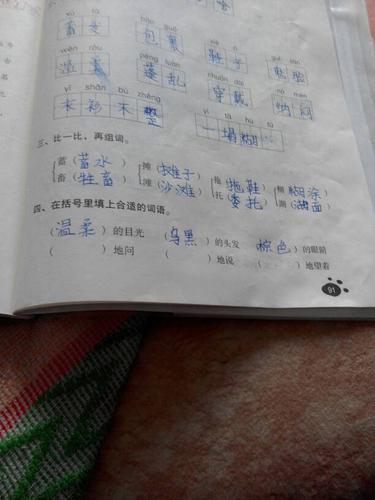 xù fà bāo guǒ xiē
蓄发 包裹 鞋子
wēn róu péng luàn
温柔 蓬乱 穿戴 纳闷
yī shān bù zhěng
衣衫不整
yī tā hú tú
一塌糊
三、比一比，再组词。
蓄（蓄水） 摊（摊子） 拖（拖鞋） 糊（糊涂）
畜（牲畜） 滩（沙滩） 托（委托） 湖（湖面）
四、在括号里填上合适的词语。
（温柔）的目光 （乌黑）的头发 （棕色）的眼睛
（ ）地问 （ ）地说 （ ）地望着
91